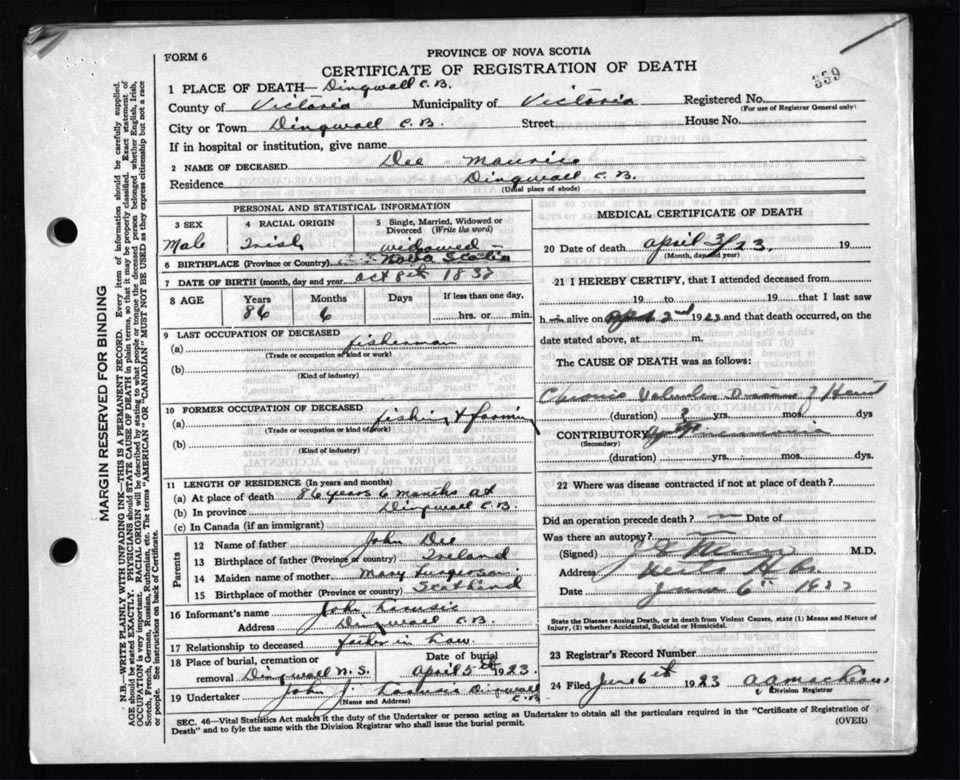 FORM 6
PROVINCE OF NOVA SCOTIA
CERTIFICATE OF REGISTRATION OF DEATH
339
1 PLACE OF DEATH—Dingwall C.B.
County of Victoria Municipality of Victoria Registered No.
(For use of Registrar General only)
City or Town Dingwall C.B. Street House No.
If in hospital or institution, give name
2 NAME OF DECEASED Dee Maurice
Residence Dingwall C.B.
(Usual place of abode)
PERSONAL AND STATISTICAL INFORMATION
3 SEX 4 RACIAL ORIGIN 5 Single, Married, Widowed or Divorced (Write the word)
Male Irish widowed
6 BIRTHPLACE (Province or Country) Nova Scotia
7 DATE OF BIRTH (month, day and year) Oct 8th
8 AGE Years Months Days If less than one day,
86 6 hrs. or min.
9 LAST OCCUPATION OF DECEASED
(a) fisherman
(Trade or occupation or kind or work)
(b)
(Kind of industry)
10 FORMER OCCUPATION OF DECEASED
(a) fishing & farming
(Trade or occupation or kind of work)
(b)
(Kind of industry)
11 LENGTH OF RESIDENCE (In years and months)
(a) At place of death 86 years 6 months at
(b) In province Dingwall C.B.
(c) In Canada (if an immigrant)
Parents
12 Name of father John Dee
13 Birthplace of father (Province or country) Ireland
14 Maiden name of mother Mary
15 Birthplace of mother (Province or country) Scotland
16 Informant's name John
Address Dingwall C.B.
17 Relationship to deceased father in law
18 Place of burial, cremation or removal Dingwall N.S. Date of burial April 5th 1923.
19 Undertaker John J. Dingwall C.B.
(Name and Address)
MEDICAL CERTIFICATE OF DEATH
20 Date of death April 3/23. 19
(Month, day and year)
21 I HEREBY CERTIFY, that I attended deceased from
19 to 19 that I last saw
h alive on April 2nd 1923 and that death occurred, on the
date stated above, at m.
The CAUSE OF DEATH was as follows:
Chronic Valvular Disease of Heart
(duration) ? yrs. mos. dys
CONTRIBUTORY Pneumonia
(Secondary)
(duration) yrs. mos. dys.
22 Where was disease contracted if not at place of death?
Did an operation precede death? Date of
Was there an autopsy?
(Signed) M.D.
Address
Date June 6
State the Disease causing Death, or in death from Violent Causes, state (1) Means and Nature of Injury, (2) whether Accidental, Suicidal or Homicidal.
23 Registrar's Record Number
24 Filed June 6th 1923
Division Registrar
SEC. 46—Vital Statistics Act makes it the duty of the Undertaker or person acting as Undertaker to obtain all the particulars required in the "Certificate of Registration of
Death" and to fyle the same with the Division Registrar who shall issue the burial permit. (OVER)
MARGIN RESERVED FOR BINDING
N.B.—WRITE PLAINLY WITH UNFADING INK—THIS IS A PERMANENT RECORD. Every item of information should be carefully supplied.
AGE should be stated EXACTLY. PHYSICIANS should STATE CAUSE OF DEATH in plain terms, so that it may be properly classified. Exact statement of
OCCUPATION is very important. RACIAL ORIGIN will be described by stating to what people or tongue the deceased person belonged whether English, Irish,
Scotch, French, German, Russian, Ruthenian, etc. The terms "AMERICAN" OR "CANADIAN" MUST NOT BE USED as they express citizenship but not a race
or people. See instructions on back of Certificate.